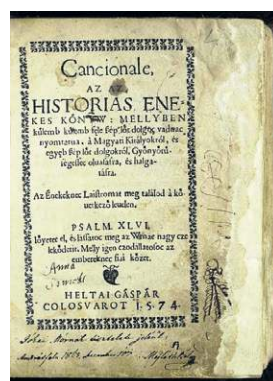 Cancionale,
AZ AZ,
HISTORIAS ENE-
KES KÖNYW: MELLYBEN
külemb külemb féle szép lött dolgoc vadnac
nyomtatua, à Magyari Királyokról, és
egyéb szép lött dolgokról, Gyönyörü-
ségessec oluasásra, és halga-
tásra.
Az Enekeknec Laistromat meg találod à kö-
uetkezö leuelen.
PSALM. XLVI.
Iöyetec el, és lássatoc meg az WRnac nagy cse
lekedetit. Melly igen czodállatosoc az
embereknec fiai közöt.
Anna
HELTAI GÁSPÁR
COLOSVAROT 1.5.7 4.
Jókai Mornak